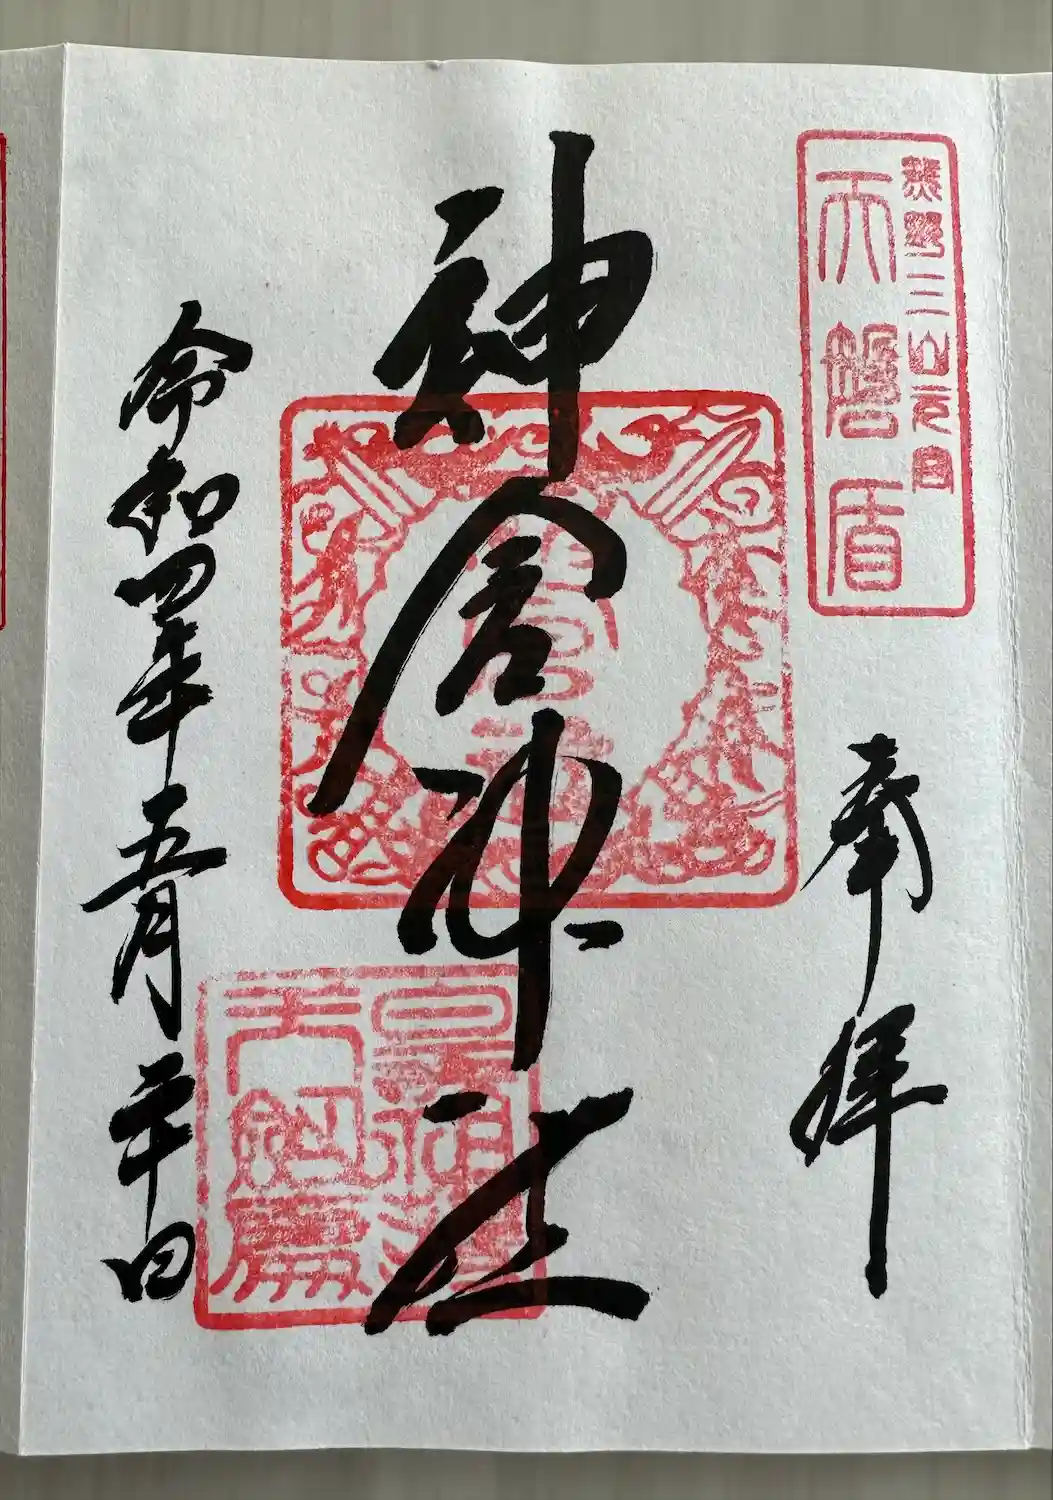 熊野三山元宮
天磐盾
奉拝
神倉神社
令和四年五月二十日